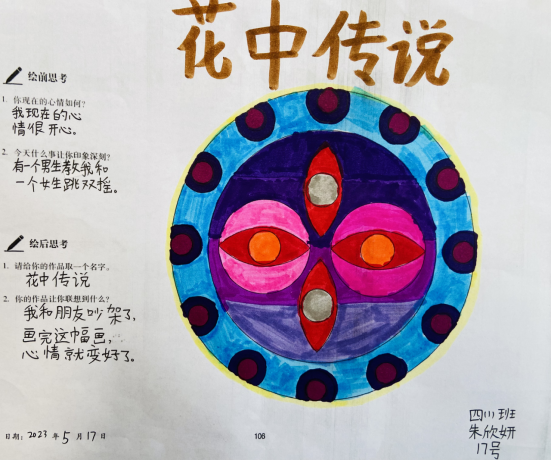 花中传说
绘前思考
1. 你现在的心情如何?
我现在的心
情很开心。
2. 今天什么事让你印象深刻?
有一个男生教我和
一个女生跳双摇。
绘后思考
1. 请给你的作品取一个名字。
花中传说
2. 你的作品让你联想到什么?
我和朋友吵架了,
画完这幅画,
心情就变好了。
日期: 2023 年 5 月 17 日
106
四川班
朱欣妍
17号